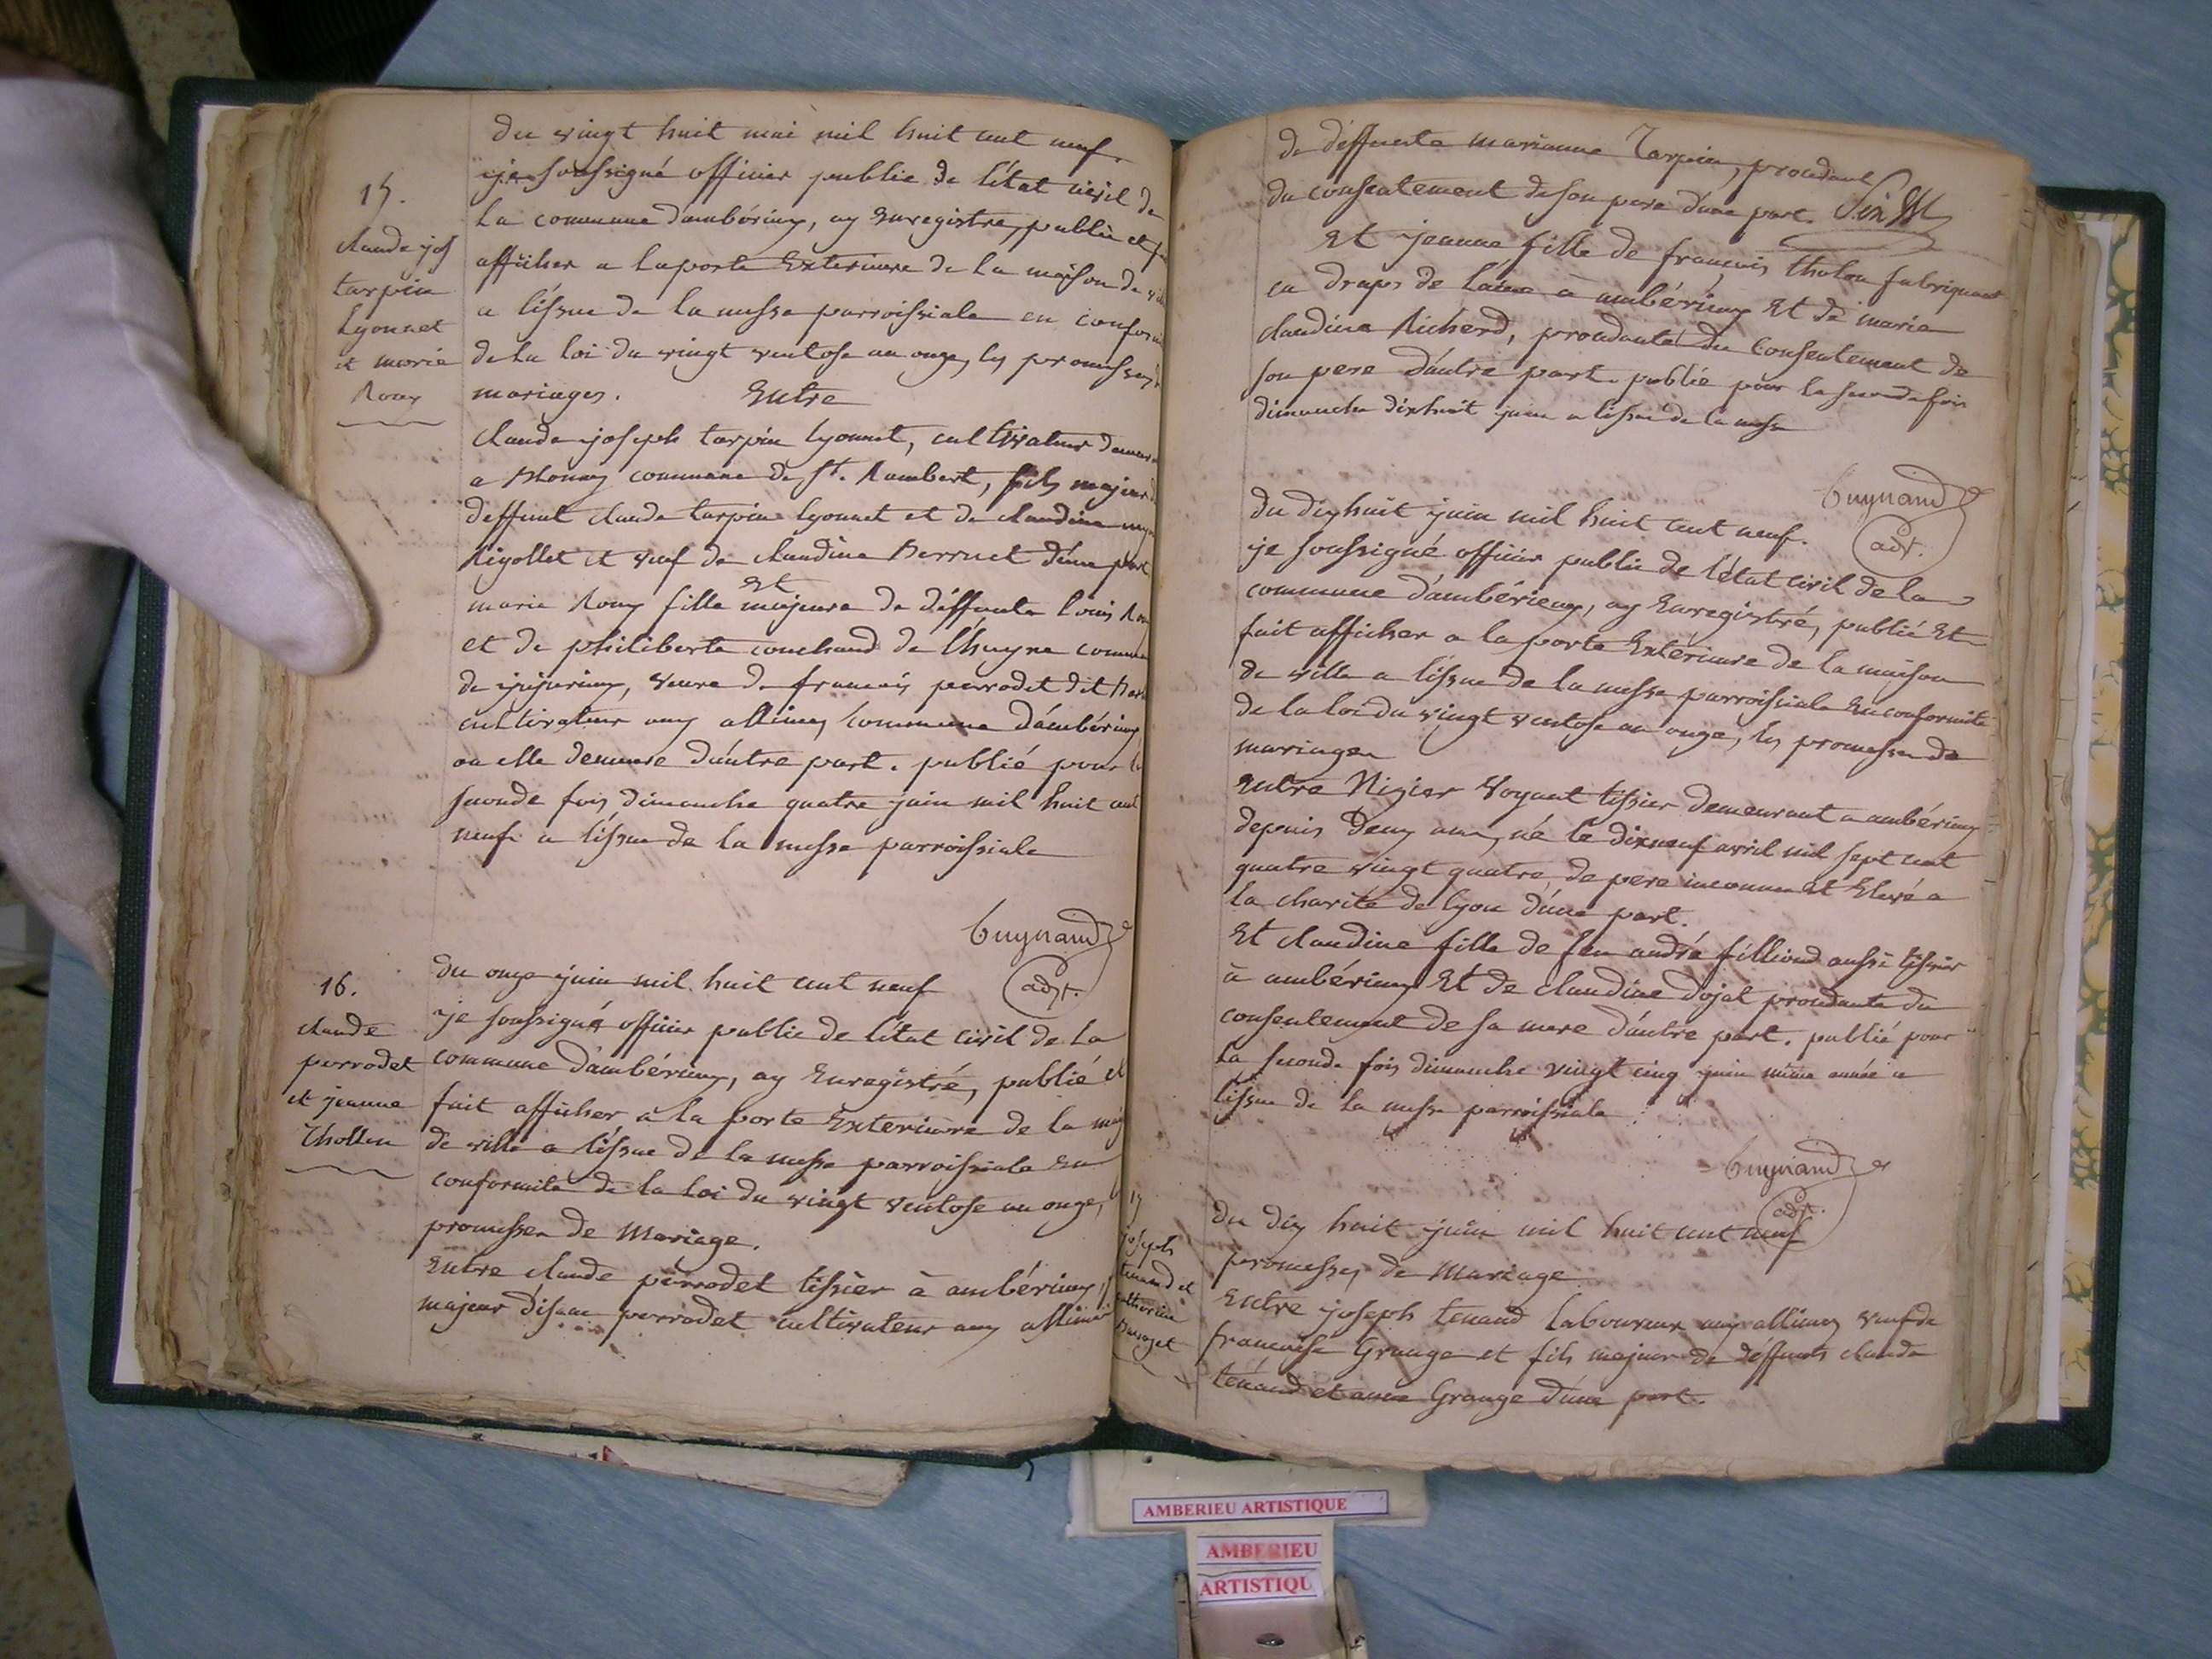 du vingt huit mai mil huit cent neuf.
je soussigné officier public de l'état civil de
la commune d'ambérieux, ay enregistré, publié et
afficher a la porte Exterieure de la maison de
a l'issue de la messe parroissiale en
de la loi du vingt ventose an onze, les promesses
mariages. Entre
claude joseph tarpin lyonnet, cultivateur
a commune de St. Rambert, fils majeur
deffunt claude tarpin lyonnet et de claudine
Rigollet et veuf de claudine d'une part
Et
marie Roux fille majeure de déffunts louis
et de philiberte couchaud de commune
de jujurieux, veuve de francois perrodet dit
cultivateur aux allimes commune d'ambérieux
ou elle demeure d'autre part. publié pour
seconde fois dimanche quatre juin mil huit cent
neuf a l'issue de la messe parroissiale
15.
claude jos
tarpin
Lyonnet
et marie
Roux
Guynand
adjt.
16.
claude
perrodet
et jeanne
Thollon
du onze juin mil huit cent neuf
je soussigné officier public de l'état civil de la
commune d'ambérieux, ay Enregistré, publié et
fait afficher a la porte Exterieure de la
de ville a l'issue de la messe parroissiale En
conformité de la loi du vingt ventose an onze,
promesses de Mariage.
Entre claude perrodet tissier à ambérieux,
majeur d'isaac perrodet cultivateur aux allimes
de deffunte marianne Tarpin, procedant
du consentement de son pere d'une part.
Et jeanne fille de francois tholon fabriquant
en draps de laine à ambérieux Et de marie
claudine Richerd, procedante du Consentement de
son pere d'autre part. publié pour la seconde fois
dimanche dixhuit juin a l'issue de la messe
Guynand
adjt.
du dixhuit juin mil huit cent neuf.
je soussigné officier public de l'état civil de la
commune d'ambérieux, ay Enregistré, publié Et
fait afficher a la porte Extérieure de la maison
de ville a l'issue de la messe parroissiale En conformité
de la loi du vingt ventose an onze, les promesses de
mariages
Entre Nizier Voyant tissier demeurant a ambérieux
depuis deux ans, né le dixneuf avril mil sept cent
quatre vingt quatre de pere inconnu Et Elevé a
la charité de lyon d'une part.
Et claudine fille de feu andré filliond aussi tissier
à ambérieux Et de claudine dojat procedante du
consentement de sa mere d'autre part. publié pour
la seconde fois dimanche vingt cinq juin même année a
l'issue de la messe parroissiale
Guynand
adjt.
17
joseph
tenand et
catherine
du dix huit juin mil huit cent neuf
promesses de Mariage
Entre joseph tenand laboureur aux allimes veuf de
francoise Grange et fils majeur de déffunts claude
tenand et anne Grange d'une part.
AMBERIEU ARTISTIQUE
AMBERIEU
ARTISTIQU